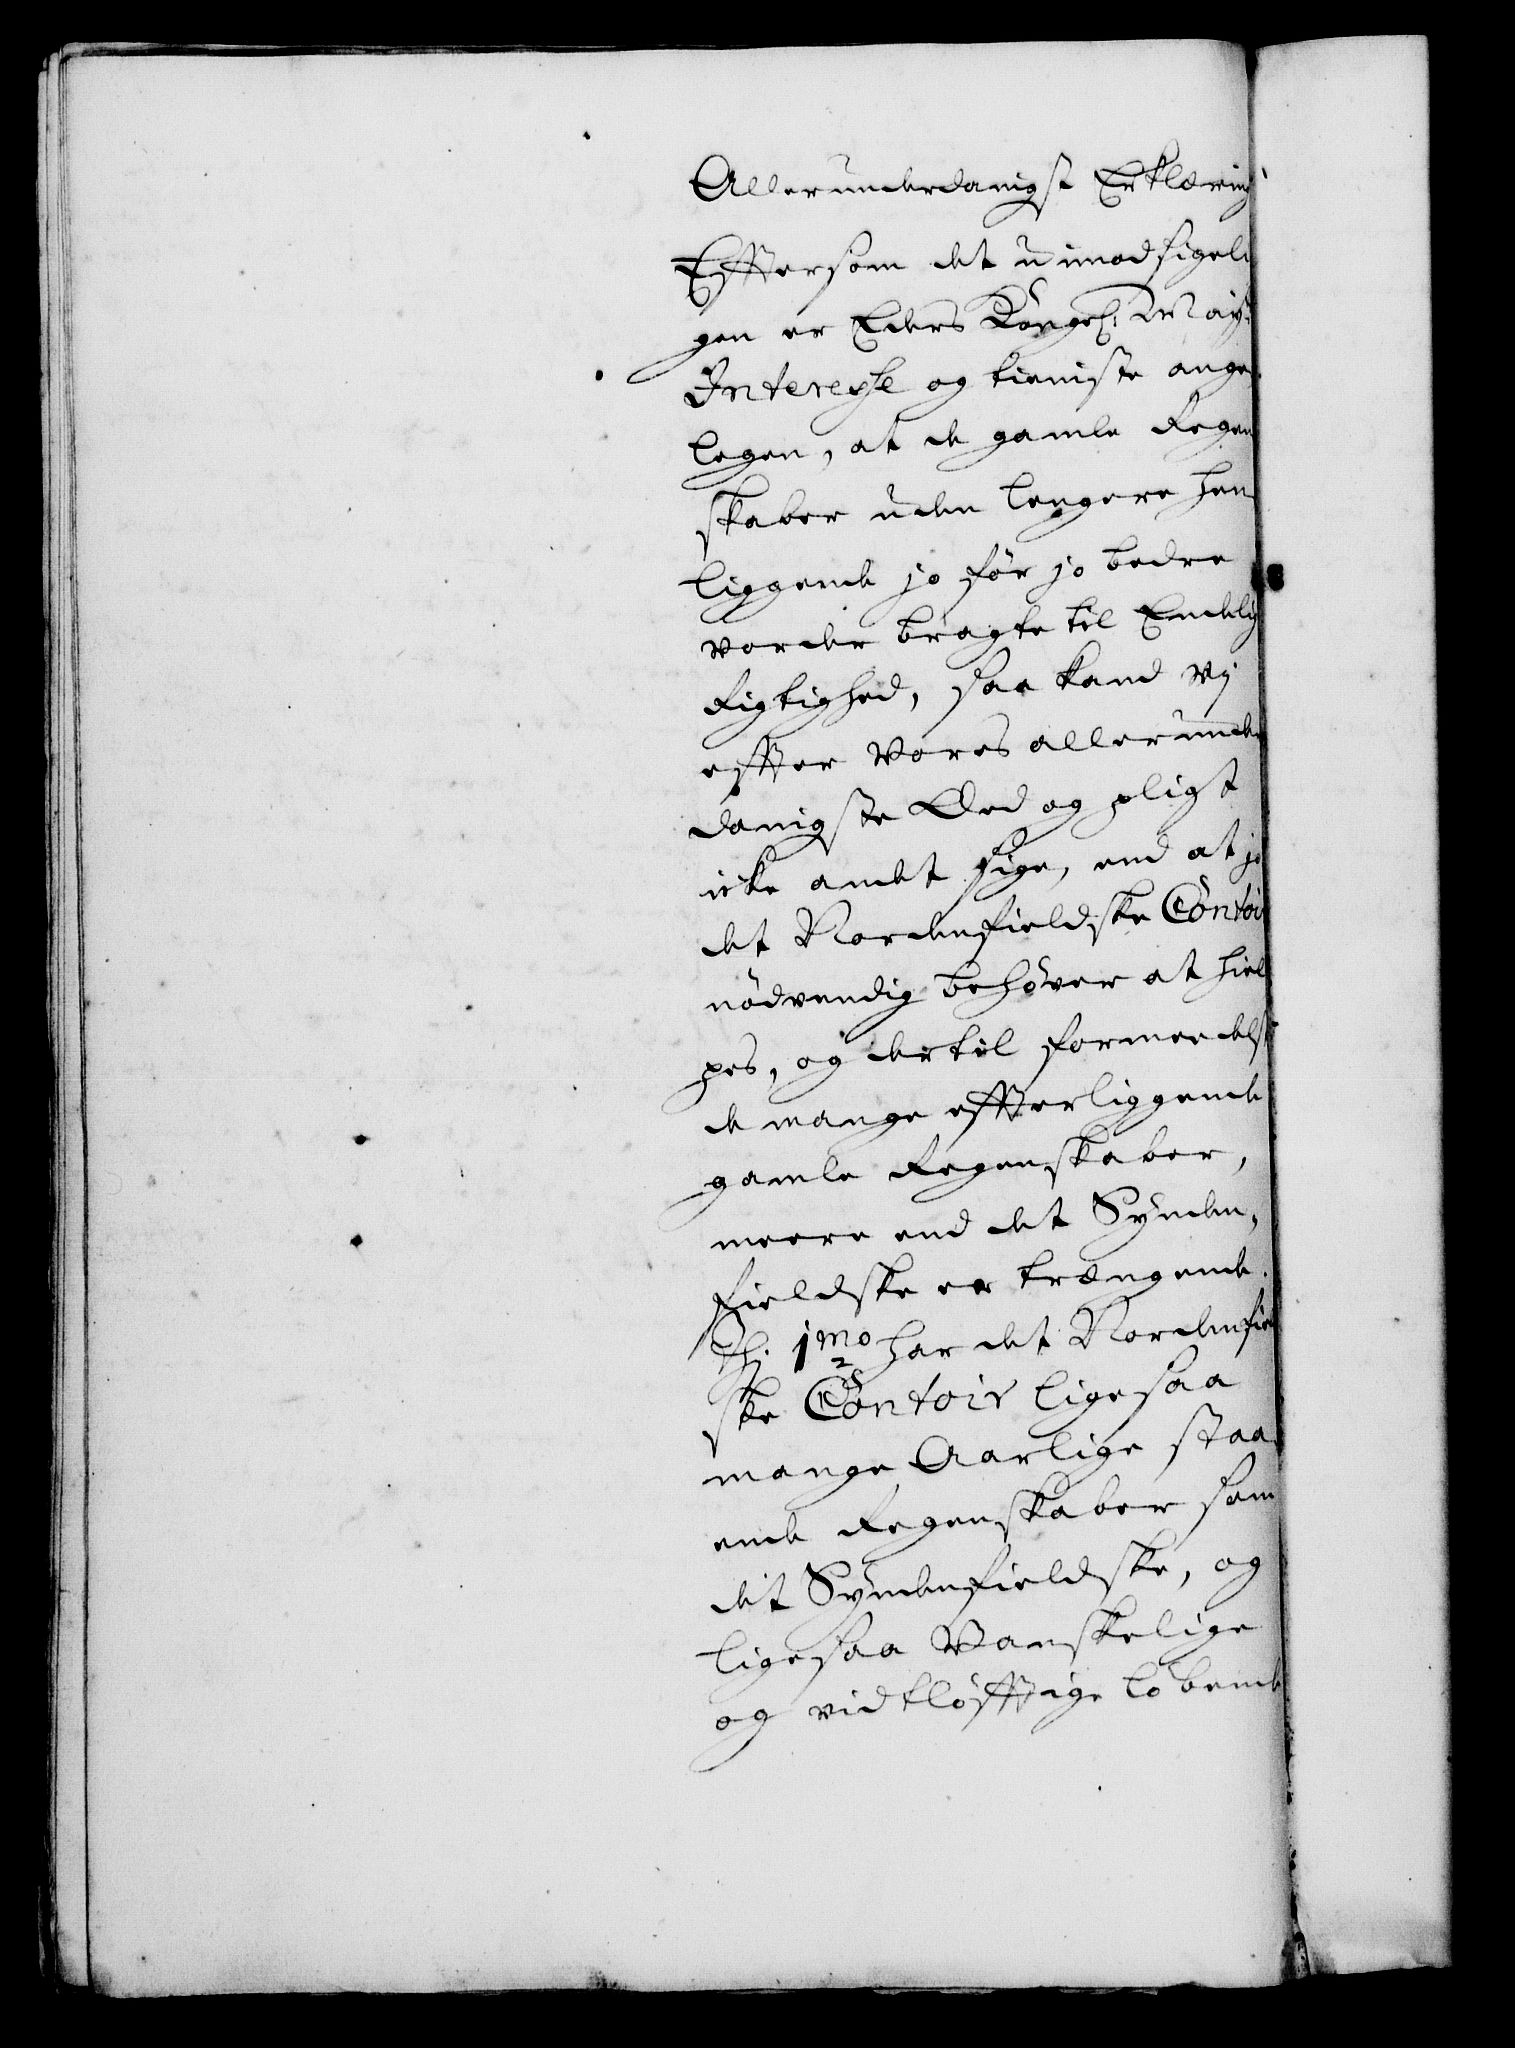 Allerunderdanigst Erklæring
Effersom det uimodsigeli
gen er Eders Kongel: May:
Interesse og tieniste ange
legen, at de gamle Regen
skaber uden lengere hen
liggende jo før jo bedre
vorder bragte til Endelig
Rigtighed, saa kand vj
effter Vores allerunder
danigste Eed og pligt
icke andet sige, end at jo
det Nordenfieldske Contoir
nødvendig behøver at hiel
pes, og dertil formedelst
de mange effterliggende
gamle Regenskaber,
meere end det Synden,
fieldske er trængende.
Thj. 1mo har det Nordenfield
ske Contoir ligesaa
mange Aarlige staa
ende Regenskaber som
dit Syndenfieldske, og
ligesaa Vanskelige
og vidtløfftige løbende